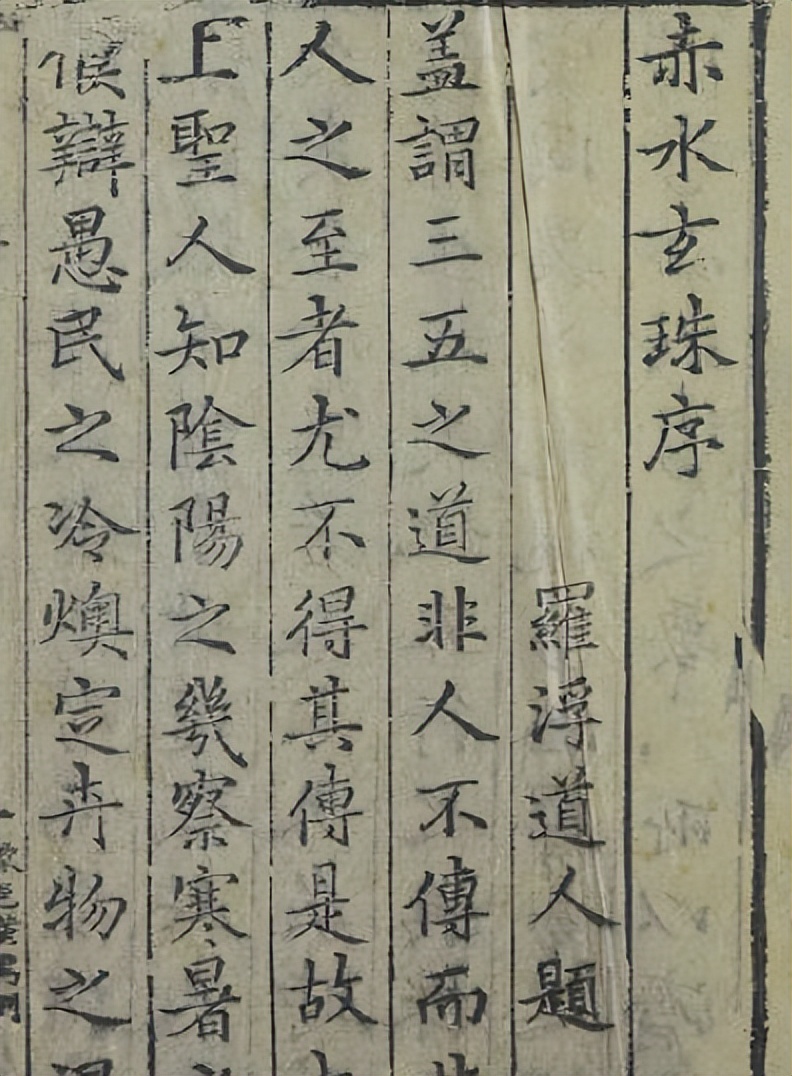 赤水玄珠序
羅浮道人題
盖謂三五之道非人不傳而非
人之至者尤不得其傳是故
上聖人知陰陽之幾察寒暑之
候辯愚民之冷燠定卉物之